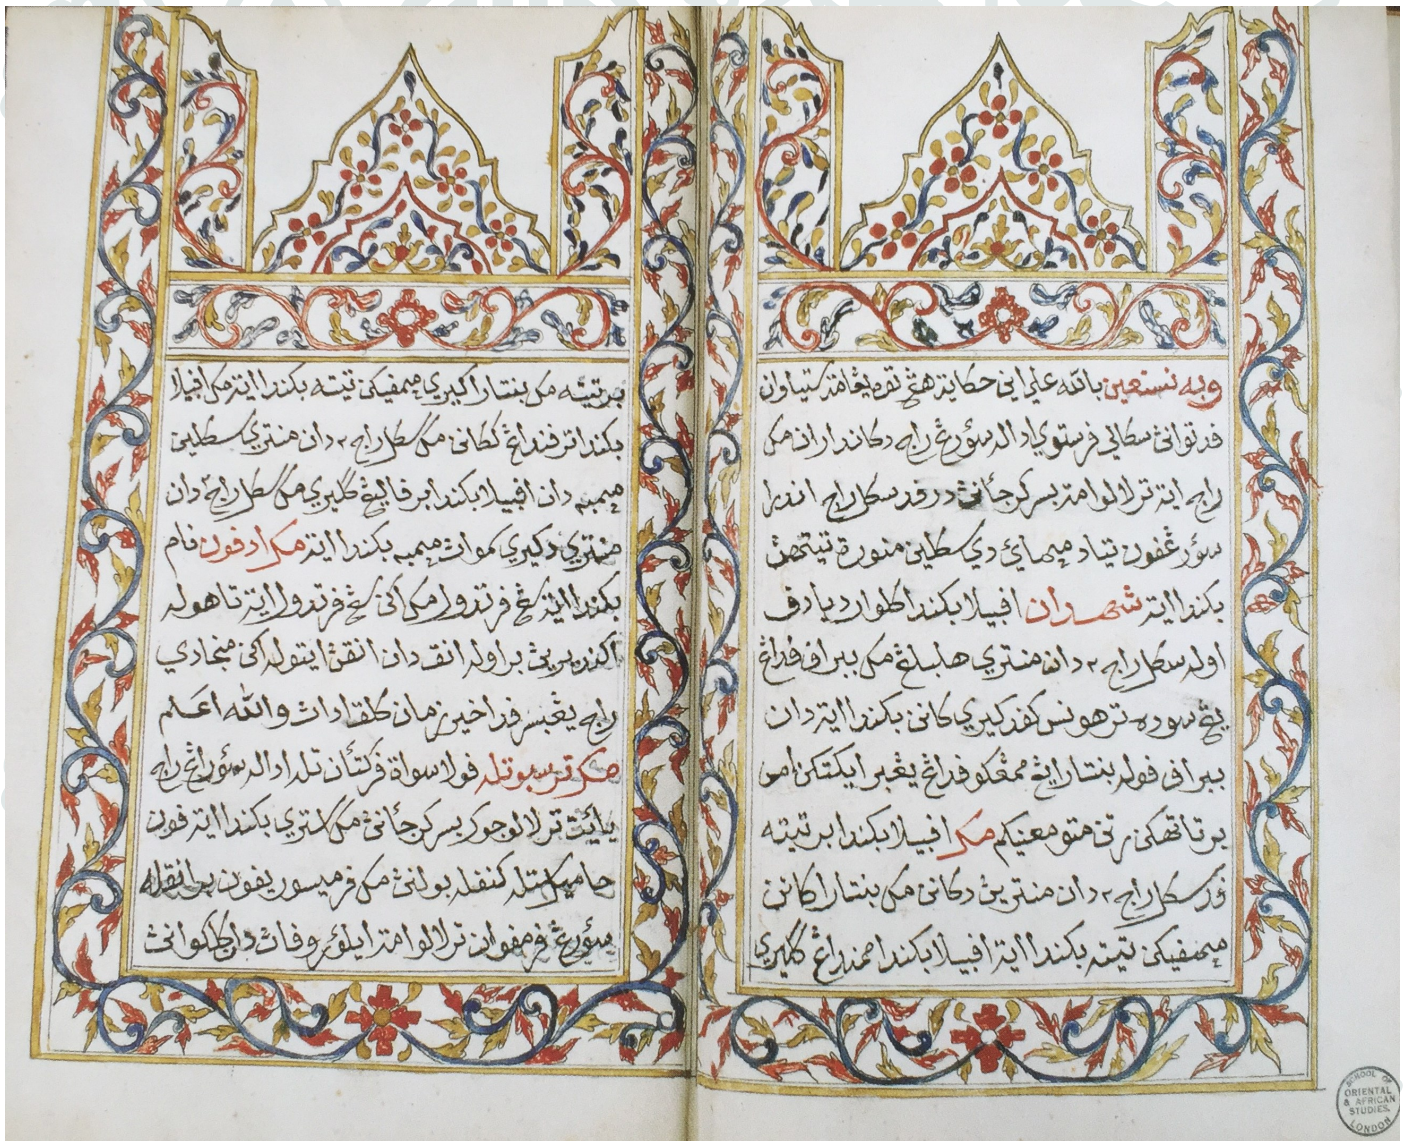 وبه نستعين بالله علي اين حكاية هڠ يڠ امة ستياون
فد توانڽ سكالي فرستوي اد اله سؤرڠ راج دكاندارن مك
راج ايت ترلالو امت بسر كرجأنڽ درفد سكل راج اندرا
سؤرڠفون تياد ميماي دي سلطين تيتهڽ
بكندا ايت شهدان افبيلا بكندا كلوار دهادف
اوله سكل راج٢ دان منتري هلبالڠ مك ببراف فداڠ
يڠ سوده ترهونس كفد كيري كانن بكندا ايت دان
ببراف فوله بنتارا يڠ ممڠكو فداڠ يڠبر ايكتكن امس
برتاتهكن رتن متو معنيكم مك افبيلا بكندا برتيته
فد سكل راج٢ دان منتريڽ دكانن مك بنتارا كانن
ميمفيكن تيته بكندا ايت افبيلا بكندا ممندڠ ككيري
برتيته مك بنتارا كيري ميمفيكن تيته بكندا ايت مك افبيلا
بكندا ترفندڠ ككانن مك سكل راج٢ دان منتري سكلين
ميمبه دان افبيلا بكندا برفاليڠ ككيري مك سكل راج٢ دان
منتري دكيري ميمبه بكندا ايت مك ادفون نام
بكندا ايت سڠ فرتدول مك اكن سڠ فرتدول ايت تاهو له
اكن برڽ براوله انق دان انقڽ ايتوله اكن منجادي
راج يڠ بسر فد اخير زمان كلق دان والله اعلم
مك ترسبوتله فولا سواة فركتأن تله اد اله سؤرڠ راج
ترلالو بسر كرجأنڽ مك استري بكندا ايت فون
حامل ستله كنفله بولنڽ مك فرميسوري فون برانقله
سؤرڠ فرمفوان ترلالو امت ايلوق روفاڽ دان كلكوانڽ
SCHOOL OF
ORIENTAL
& AFRICAN
STUDIES.
LONDON